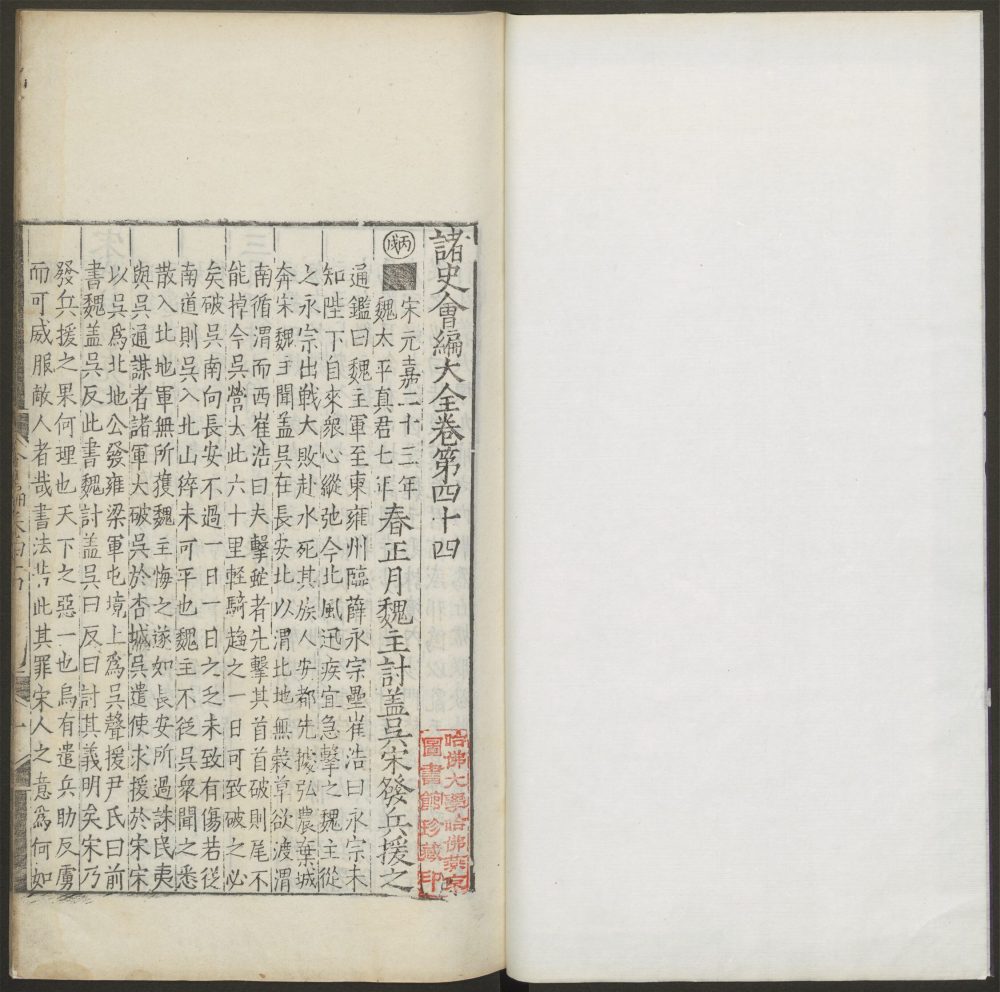 諸史會編大全卷第四十四
丙戌
宋元嘉二十三年
魏太平真君七年
春正月魏主討盖吳宋發兵援之
通鑑曰魏主軍至東雍州臨薛永宗壘崔浩曰永宗未
知陛下自來衆心縱弛今北風迅疾宜急擊之魏主從
之永宗出戰大敗赴水死其族人安都先據弘農棄城
奔宋魏主聞盖吳在長安北以渭北地無穀草欲渡渭
南循渭而西崔浩曰夫擊蛇者先擊其首首破則尾不
能掉今吳營去此六十里軽騎趨之一日可致破之必
矣破吳南向長安不過一日一日之乏未致有傷若從
南道則吳入北山猝未可平也魏主不從吳衆聞之悉
散入北地軍無所獲魏主悔之遂如長安所過誅民夷
與吳通謀者諸軍大破吳於杏城吳遣使求援於宋宋
以吳爲北地公發雍梁軍屯境上爲吳聲援尹氏曰前
書魏盖吳反此書魏討盖吳曰反曰討其義明矣宋乃
發兵援之果何理也天下之惡一也烏有遣兵助反虜
而可威服敵人者哉書法若此其罪宋人之意爲何如
哈佛大學哈佛燕京
圖書館珍藏印